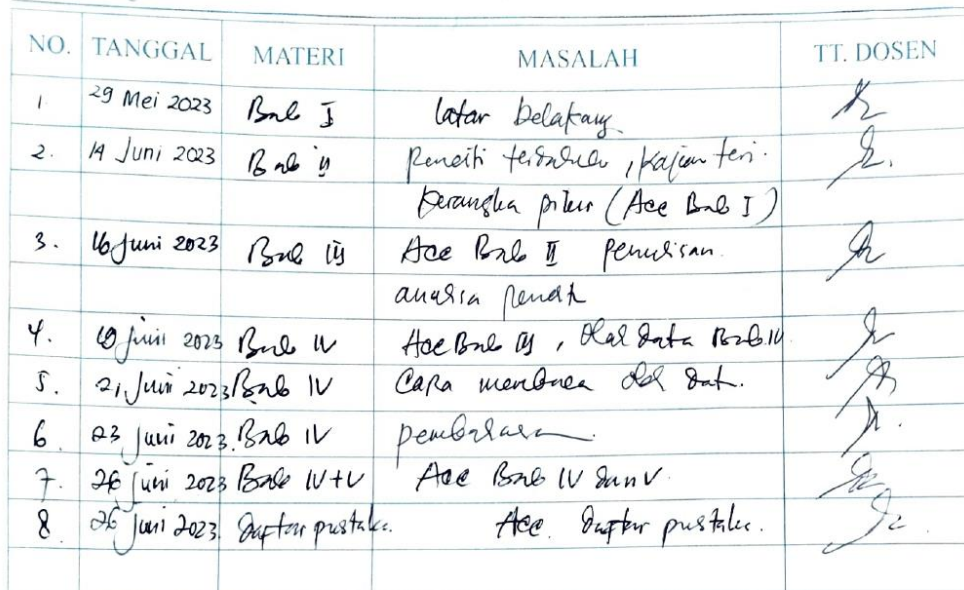 NO. TANGGAL MATERI MASALAH TT. DOSEN
1 29 Mei 2023 Bab I latar belakang
2. 14 Juni 2023 Bab II Peneliti terdahulu, kajian teri.
kerangka pikir (Acc Bab I)
3. 16 Juni 2023 Bab III Acc Bab II penulisan
analisa
4. 19 Juni 2023 Bab IV Acc Bab III, Olah data Bab IV
5. 21 Juni 2023 Bab IV Cara membaca olah dat.
6. 23 Juni 2023 Bab IV pembahasan
7. 26 Juni 2023 Bab IV+V Acc Bab IV dan V
8 26 Juni 2023 Daftar pustaka. Acc. Daftar pustaka.